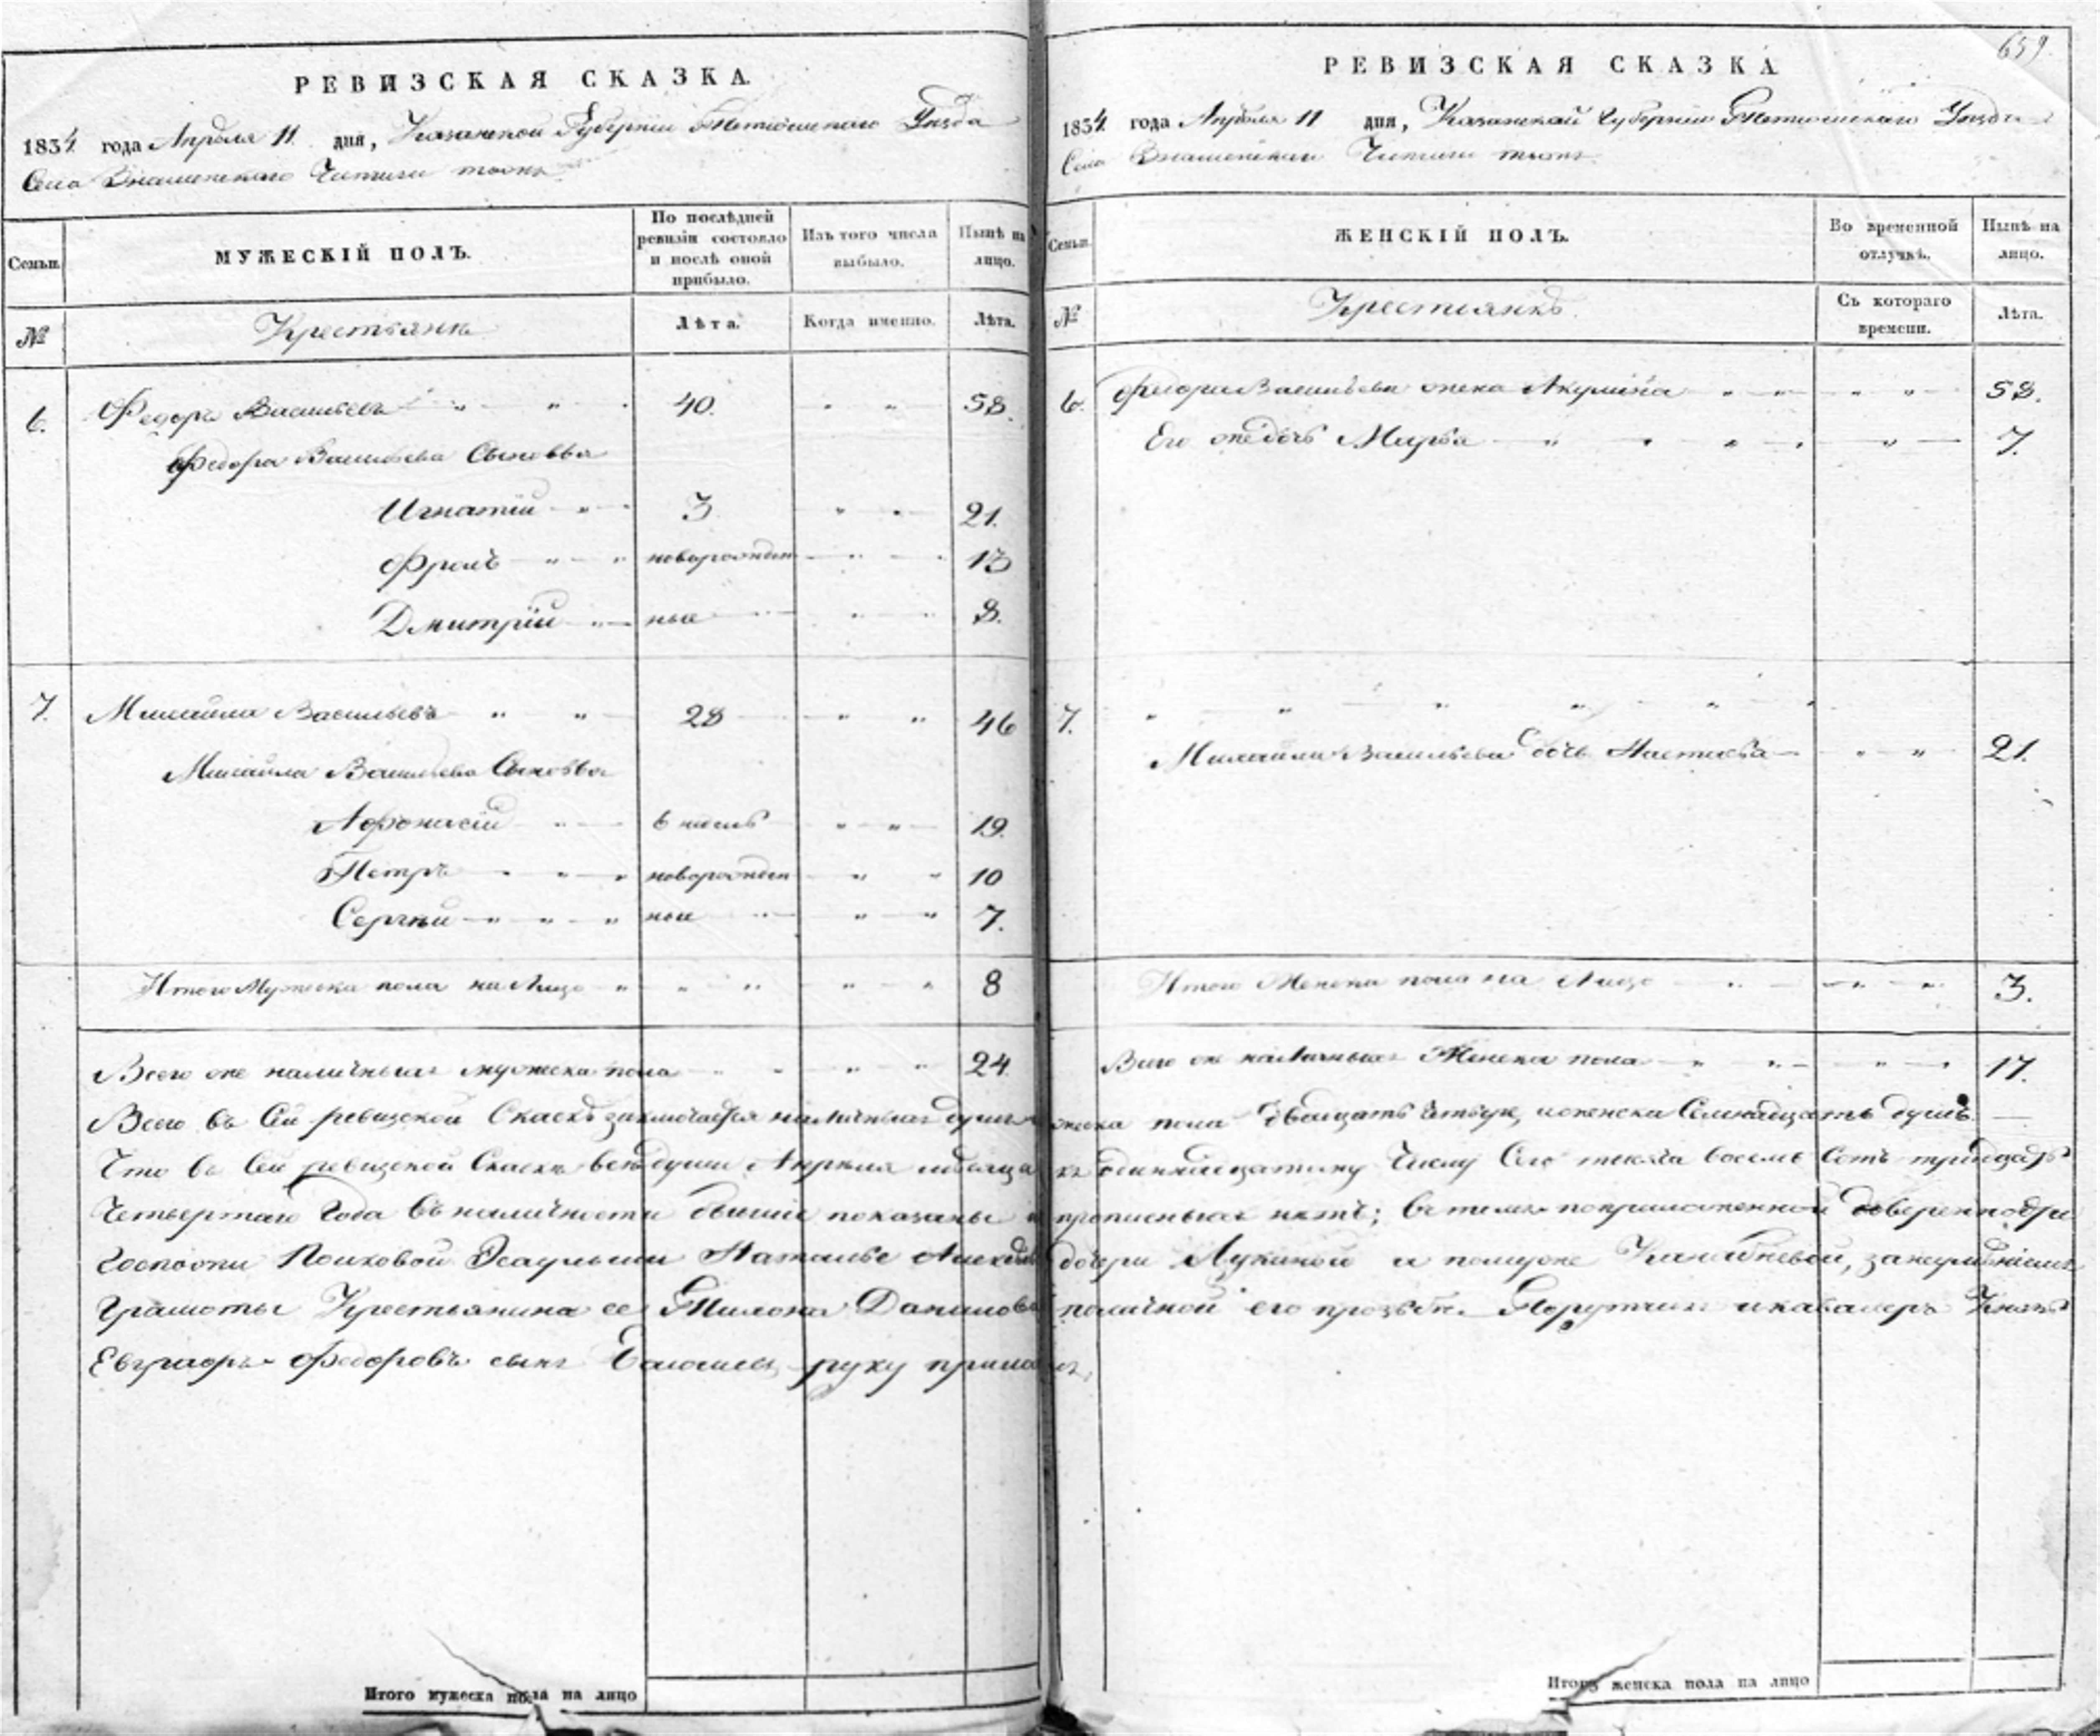 РЕВИЗСКАЯ СКАЗКА.
1834 года Апреля 11 дня, Казанской Губернии Тетюшскаго Уезда
Села Знаменскаго
Семьи.
МУЖЕСКІЙ ПОЛЪ.
По послѣдней ревизіи состояло и послѣ оной прибыло.
Изъ того числа выбыло.
Нынѣ на лицо.
№
Крестьяне
Лѣта.
Когда именно.
Лѣта.
6. Федоръ Васильевъ 40. 58.
Федора Васильева Сыновья
Игнатій 3 21.
Фролъ новорожден 13
Дмитрій ные 8.
7. Михайла Васильевъ 28 46
Михайла Васильева Сыновья
Афонасій 19.
Петръ новорожден 10
Сергѣй ные 7.
Итого Мужеска пола на Лицо 8
Всего же наличныхъ мужеска пола 24
659.
РЕВИЗСКАЯ СКАЗКА
1834 года Апреля 11 дня, Казанской Губернии Тетюшскаго Уезда
Села Знаменскаго
Семьи.
ЖЕНСКІЙ ПОЛЪ.
Во временной отлучкѣ.
Нынѣ на лицо.
№
Крестьянкѣ
Съ котораго времени.
Лѣта.
6. Федора Васильева жена Акулина 58.
Его же дочь Марѳа 7.
7.
Михайлы Васильева дочь Настасья 21.
Итого Женска пола на Лицо 3.
Всего же наличныхъ Женска пола 17.
Всего въ Сей ревизской Сказкѣ заключается наличныхъ душъ пола двадцать четыре, и женска Семнадцать душъ.
Что въ Сей ревизской Сказкѣ всѣ души Апреля месяца къ одиннадцатому Числу Сего тысяча восемь Сотъ тридцать
Четвертаго Года въ наличности бывшіе показаны и прописныхъ нетъ; въ томъ по приложенной доверенности
Госпожи Есаульши Натальи дочери Лукиной а по муже за неумѣніемъ
Грамоты Крестьянина ее Данилова по личной его прозьбе Порутчикъ и кавалеръ Князь
Евграфъ Федоровъ сынъ руку приложилъ,
Итого мужеска пола на лицо
Итого женска пола на лицо